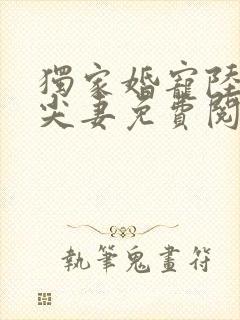 獨家婚寵陸
尖妻免費閱
執筆鬼畫符